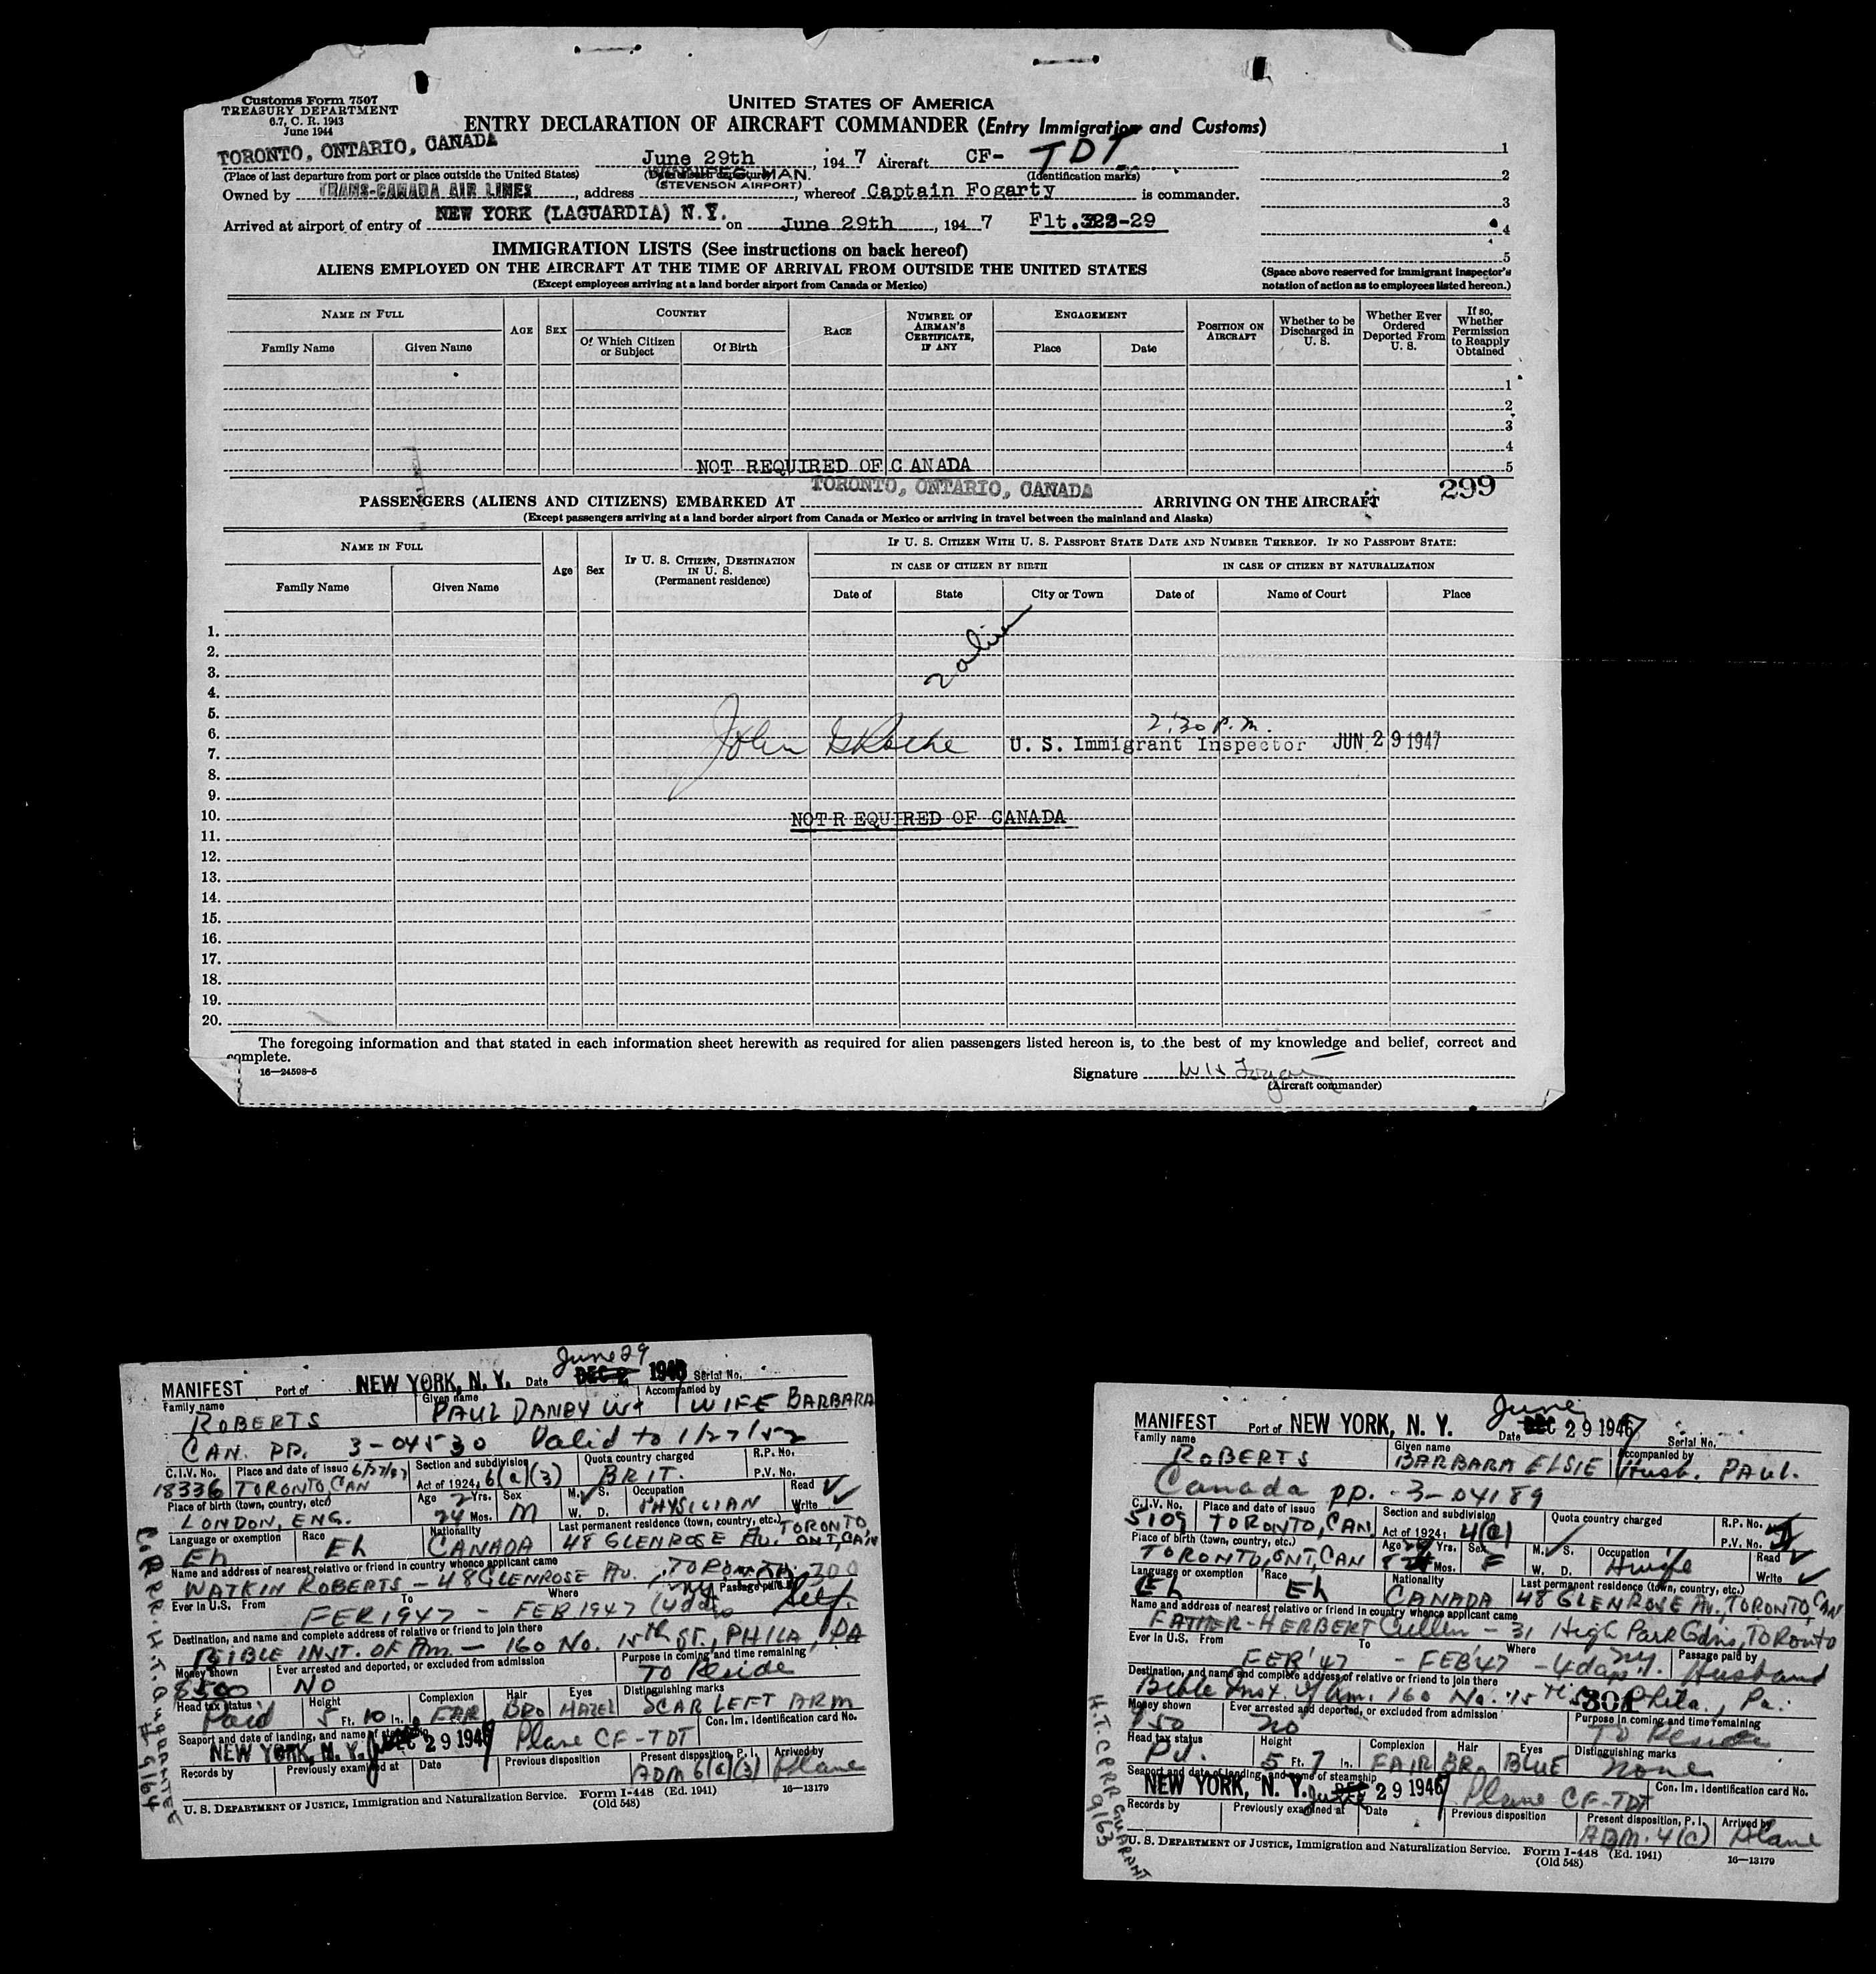 Customs Form 7507
TREASURY DEPARTMENT
6.7, C. R. 1943
June 1944
UNITED STATES OF AMERICA
ENTRY DECLARATION OF AIRCRAFT COMMANDER (Entry Immigration and Customs)
TORONTO, ONTARIO, CANADA June 29th, 1947 Aircraft CF- TDT
(Place of last departure from port or place outside the United States) WINNIPEG, MAN. (Identification marks)
(STEVENSON AIRPORT)
Owned by TRANS-CANADA AIR LINES, address, whereof Captain Fogarty is commander.
Arrived at airport of entry of NEW YORK (LAGUARDIA) N.Y. on June 29th, 1947 Flt.
1
2
3
4
5
(Space above reserved for immigrant inspector's notation of action as to employees listed hereon.)
IMMIGRATION LISTS (See instructions on back hereof)
ALIENS EMPLOYED ON THE AIRCRAFT AT THE TIME OF ARRIVAL FROM OUTSIDE THE UNITED STATES
(Except employees arriving at a land border airport from Canada or Mexico)
NAME IN FULL AGE SEX COUNTRY RACE NUMBER OF AIRMAN'S CERTIFICATE, IF ANY ENGAGEMENT POSITION ON AIRCRAFT Whether to be Discharged in U. S. Whether Ever Ordered Deported From U. S. If so, Whether Permission to Reapply Obtained
Family Name Given Name Of Which Citizen or Subject Of Birth Place Date
1
2
3
4
NOT REQUIRED OF CANADA 5
299
PASSENGERS (ALIENS AND CITIZENS) EMBARKED AT TORONTO, ONTARIO, CANADA ARRIVING ON THE AIRCRAFT
(Except passengers arriving at a land border airport from Canada or Mexico or arriving in travel between the mainland and Alaska)
NAME IN FULL Age Sex IF U. S. CITIZEN, DESTINATION IN U. S. (Permanent residence) IF U. S. CITIZEN WITH U. S. PASSPORT STATE DATE AND NUMBER THEREOF. IF NO PASSPORT STATE:
IN CASE OF CITIZEN BY BIRTH IN CASE OF CITIZEN BY NATURALIZATION
Family Name Given Name Date of State City or Town Date of Name of Court Place
1.
2.
2 alien
3.
4.
5.
2:30 P.M.
6.
John U. S. Immigrant Inspector JUN 29 1947
7.
8.
9.
10. NOT REQUIRED OF CANADA
11.
12.
13.
14.
15.
16.
17.
18.
19.
20.
The foregoing information and that stated in each information sheet herewith as required for alien passengers listed hereon is, to the best of my knowledge and belief, correct and
complete.
16—24598-5
Signature
(Aircraft commander)
June 29
MANIFEST Port of NEW YORK, N. Y. Date DEC 2 194 Serial No.
Family name Given name Accompanied by
ROBERTS PAUL DANBY WIFE BARBARA
CAN. PP. 3-04530 Valid to 1/27/52
C.I.V. No. Place and date of issue 6/27/47 Section and subdivision Quota country charged R.P. No.
18336 TORONTO CAN Act of 1924, 6(a)(3) BRIT. P.V. No.
Place of birth (town, country, etc.) Age Yrs. Sex M. S. Occupation Read
LONDON, ENG. Mos. M W. D. PHYSICIAN Write
Language or exemption Race Nationality Last permanent residence (town, country, etc.)
Eh Eh CANADA 48 GLENROSE AV. TORONTO ONT, CAN
Name and address of nearest relative or friend in country whence applicant came
WATKIN ROBERTS - 48 GLENROSE AV., TORONTO 300
Ever in U.S. From To Where Passage paid by
FEB 1947 - FEB 1947 (4 days NY Self.
Destination, and name and complete address of relative or friend to join there
BIBLE INST. OF Am. - 160 No. 15th ST., PHILA, PA
Money shown Ever arrested and deported, or excluded from admission Purpose in coming and time remaining
8500 NO To Reside
Head tax status Height Complexion Hair Eyes Distinguishing marks
Paid 5 Ft. 10 In. FAIR BRO HAZEL SCAR LEFT ARM
Seaport and date of landing, and name of steamship Con. Im. Identification card No.
NEW YORK, N. Y. DEC 29 194 Plane CF-TDT
Records by Previously examined at Date Previous disposition Present disposition, P. I. Arrived by
ADM 6(a)(3) Plane
U. S. DEPARTMENT OF JUSTICE, Immigration and Naturalization Service. Form I-448 (Ed. 1941) 16—13179
(Old 548)
June
MANIFEST Port of NEW YORK, N. Y. Date DEC 29 1947 Serial No.
Family name Given name Accompanied by
ROBERTS BARBARA ELSIE Husb. PAUL.
Canada pp. -3-04189
C.I.V. No. Place and date of issue Section and subdivision Quota country charged R.P. No.
5109 TORONTO, CAN, Act of 1924, 4(c) P.V. No.
Place of birth (town, country, etc.) Age Yrs. Sex M. S. Occupation Read
TORONTO, ONT, CAN Mos. F W. D. Hwife Write
Language or exemption Race Nationality Last permanent residence (town, country, etc.)
Eh Eh CANADA 48 GLENROSE AV., TORONTO, CAN
Name and address of nearest relative or friend in country whence applicant came
FATHER-HERBERT Cullen - 31 High Park Gdns, TORONTO
Ever in U.S. From To Where Passage paid by
FEB '47 - FEB '47 - 4 days NY. Husband
Destination, and name and complete address of relative or friend to join there
Bible Inst. of Am. 160 No. 15th St. 301 Phila., Pa.
Money shown Ever arrested and deported, or excluded from admission Purpose in coming and time remaining
no To Reside
Head tax status Height Complexion Hair Eyes Distinguishing marks
Pd. 5 Ft. 7 In. FAIR BRO BLUE none
Seaport and date of landing, and name of steamship Con. Im. Identification card No.
NEW YORK, N. Y. June 29 1947 Plane CF-TDT
Records by Previously examined at Date Previous disposition Present disposition, P. I. Arrived by
ADM. 4(c) Plane
U. S. DEPARTMENT OF JUSTICE, Immigration and Naturalization Service. Form I-448 (Ed. 1941) 16—13179
(Old 548)